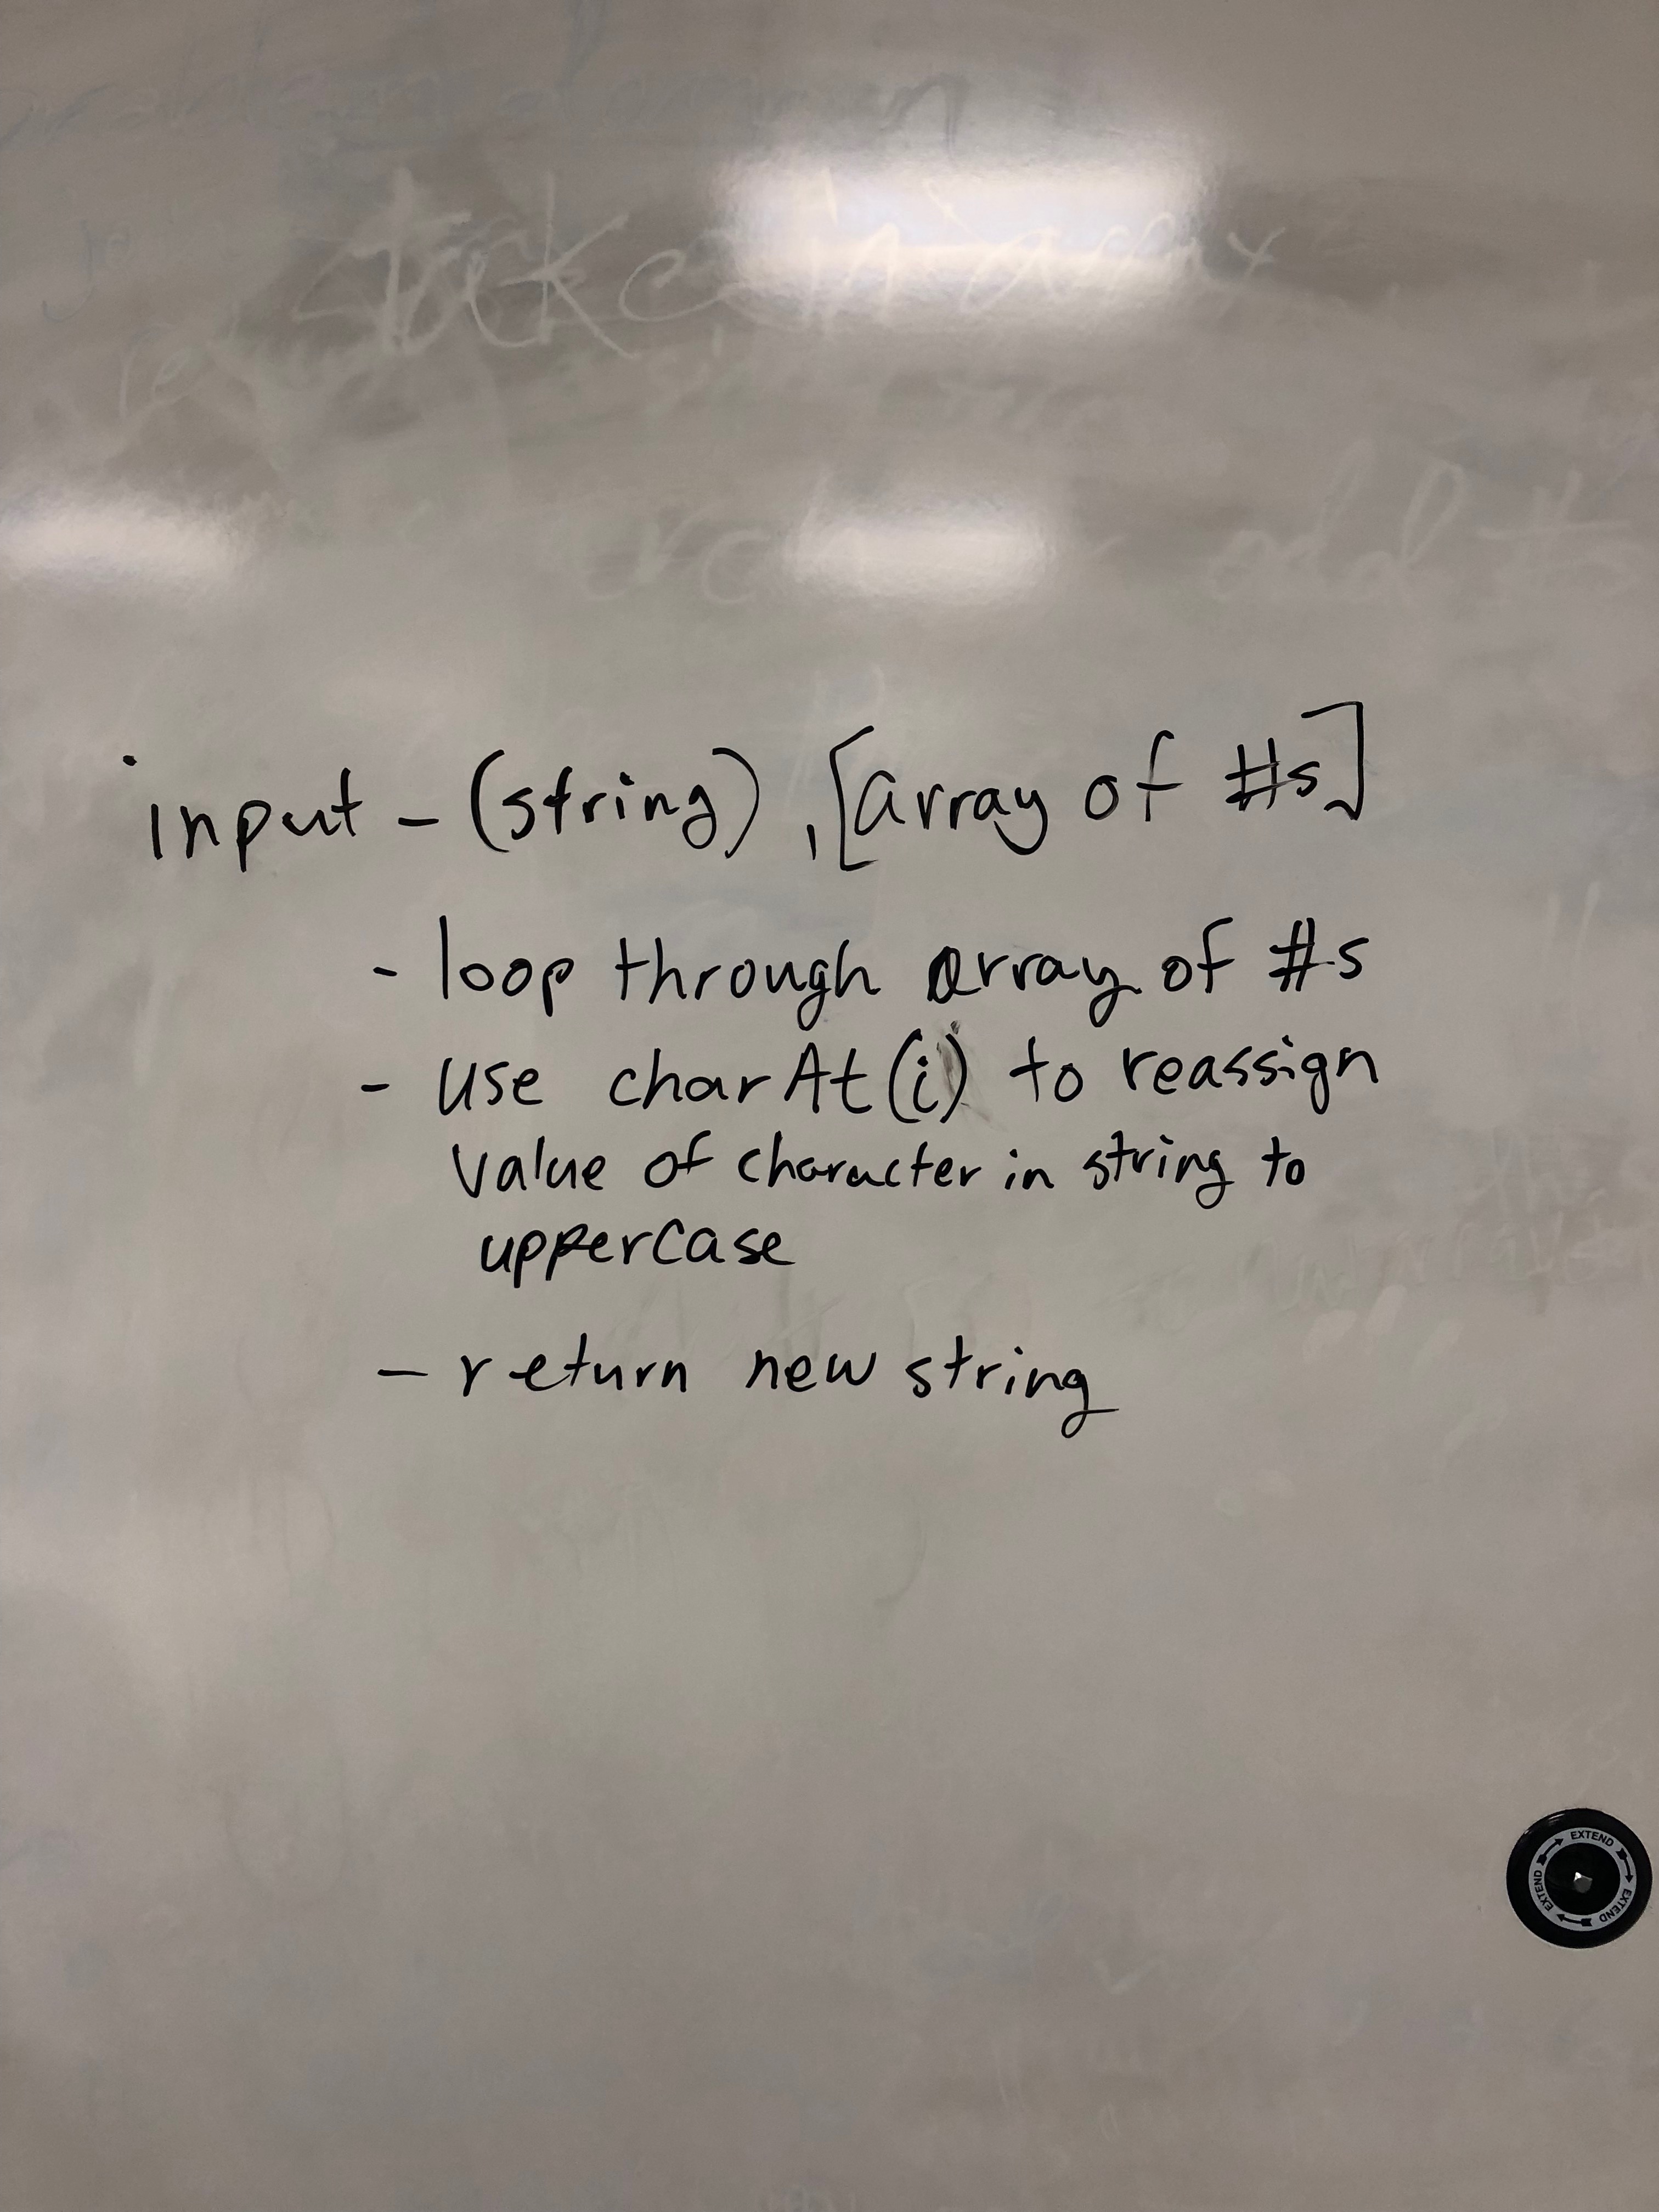 take in array
odd #s
input - (string), [array of #s]
- loop through array of #s
- use charAt(i) to reassign
value of character in string to
uppercase
- return new string
EXTEND EXTEND EXTEND